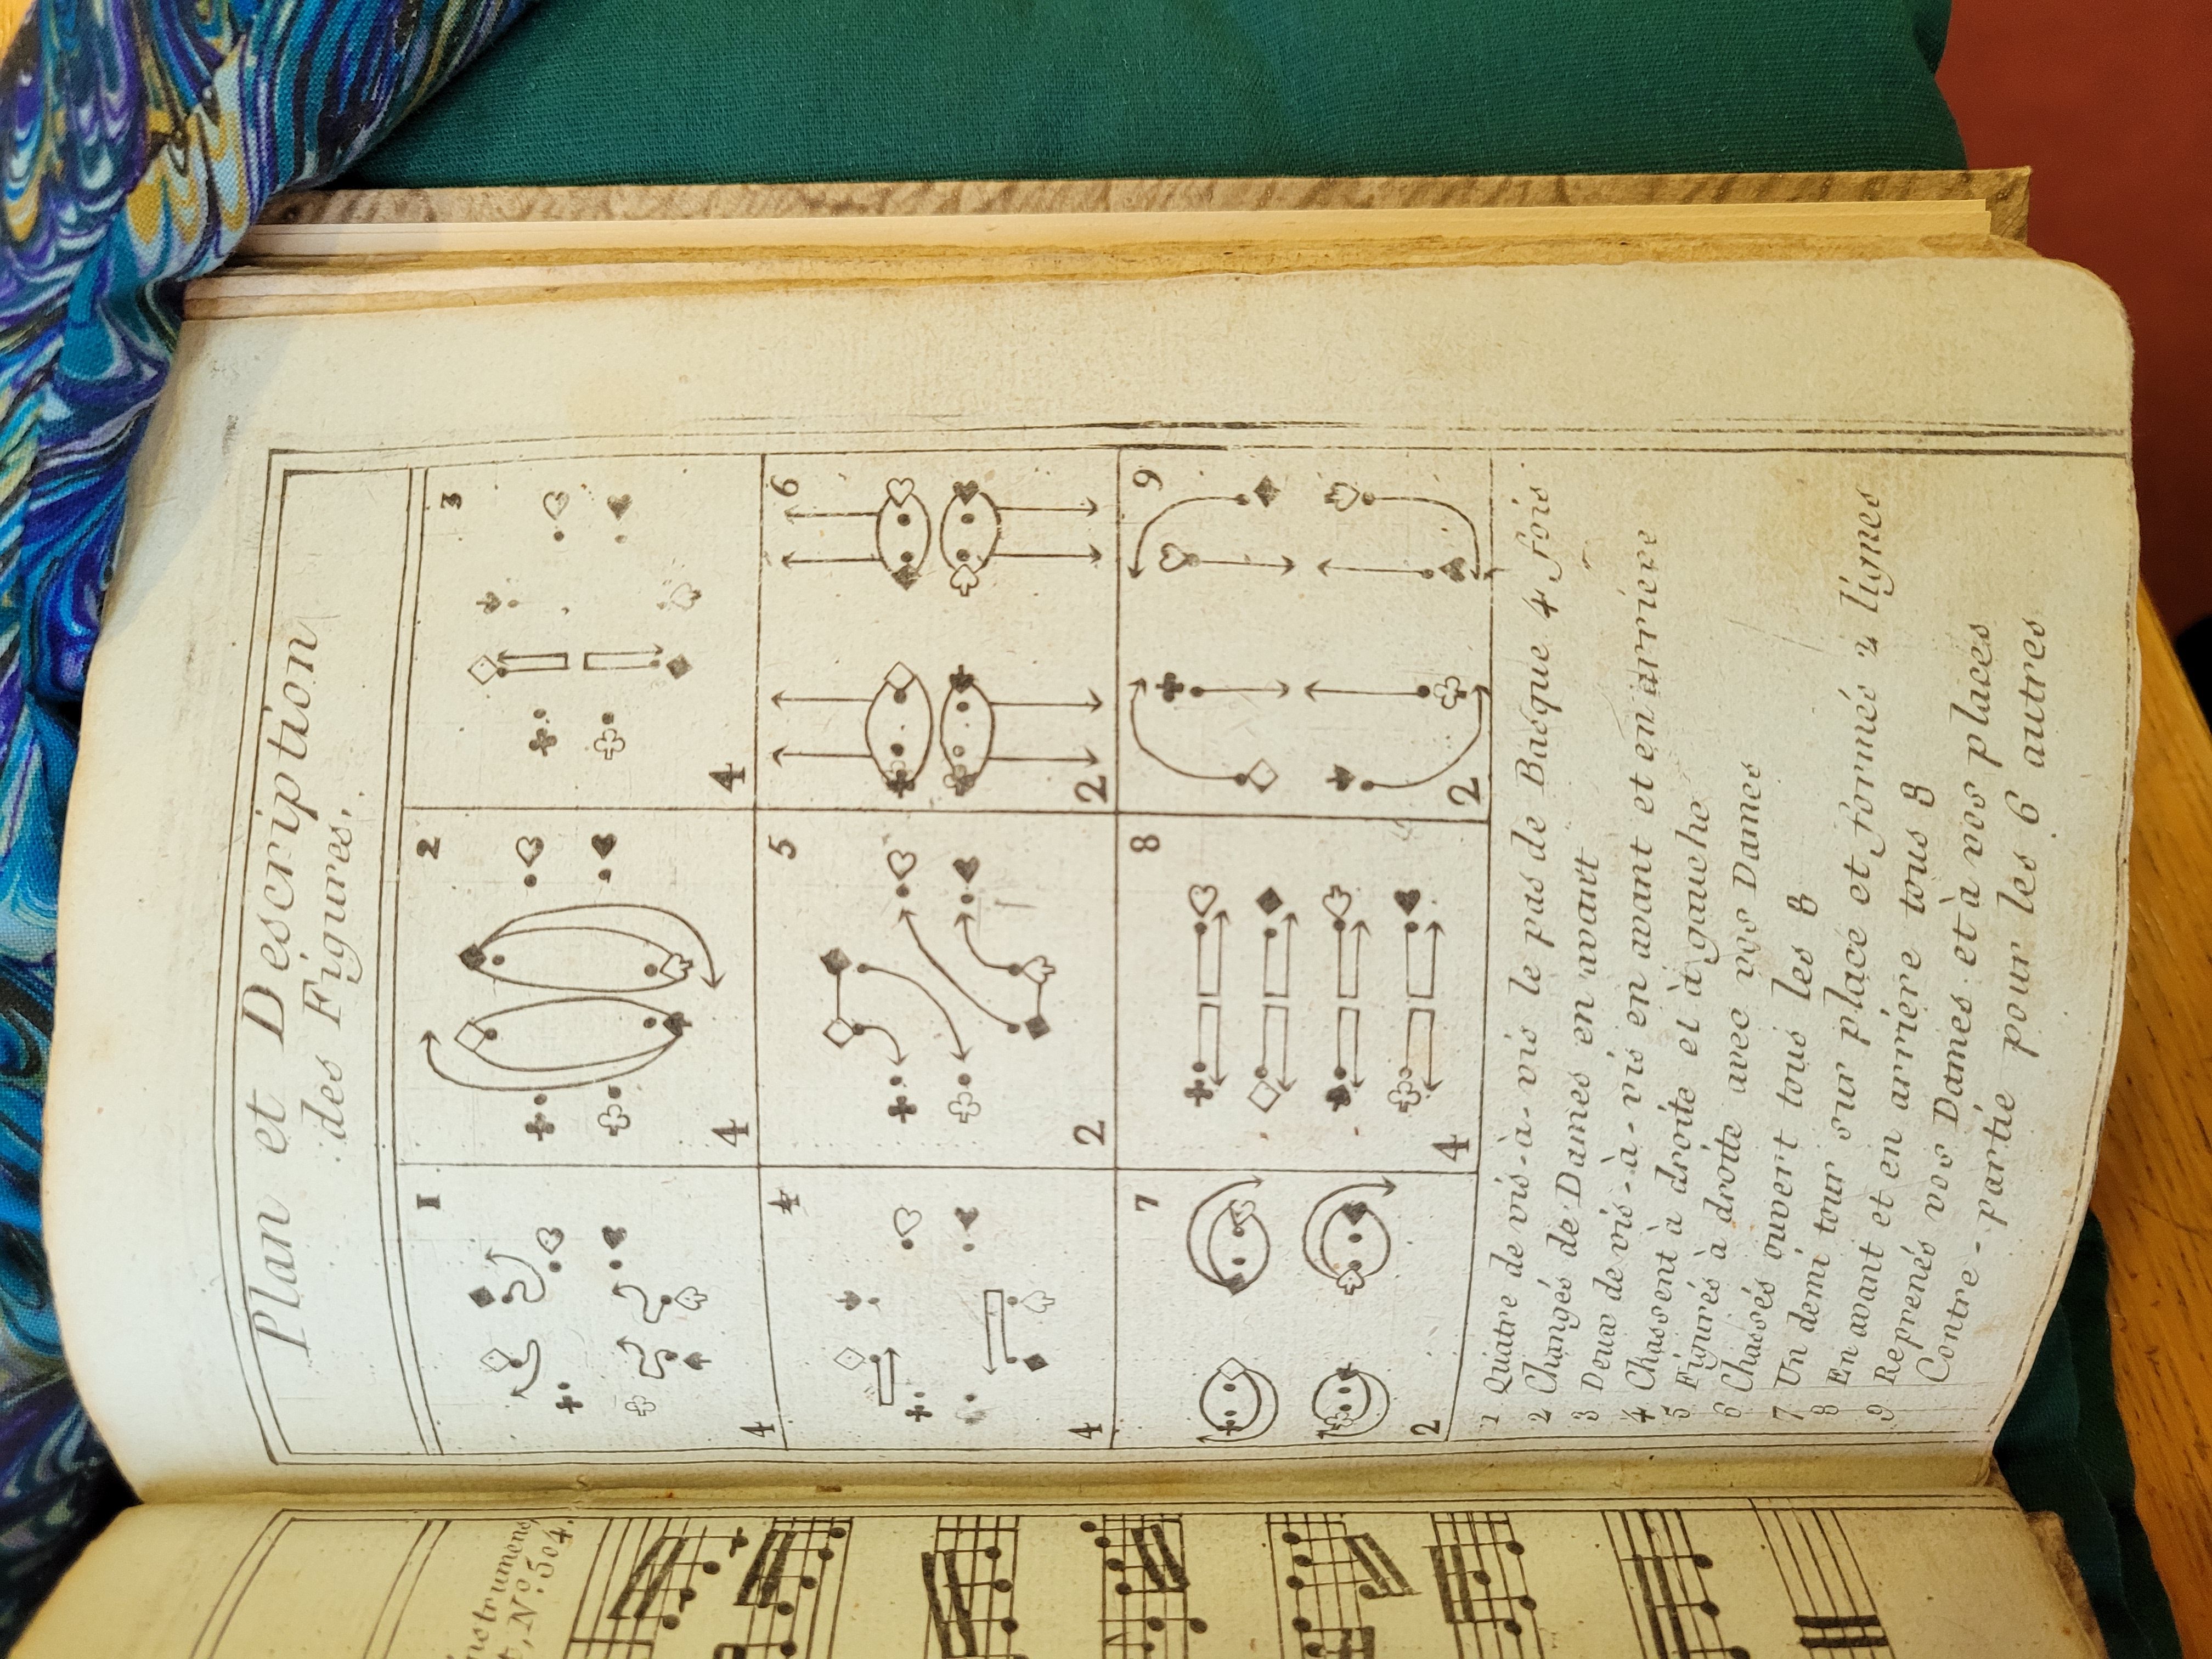 Plan et Description
des Figures.
1
2
3
4
4
4
4
5
6
4
2
2
7
8
9
2
4
2
1 Quatre de vis-à-vis le pas de Basque 4 fois
2 Changés de Dames en avant
3 Deux de vis-à-vis en avant et en arriere
4 Chassent à droite et à gauche
5 Figurés à droite avec vos Dames
6 Chassés ouvert tous les 8
7 Un demi tour sur place et formés 2 lignes
8 En avant et en arriere tous 8
9 Reprenés vos Dames et à vos places
Contre-partie pour les 6 autres
t, Nº. 504.